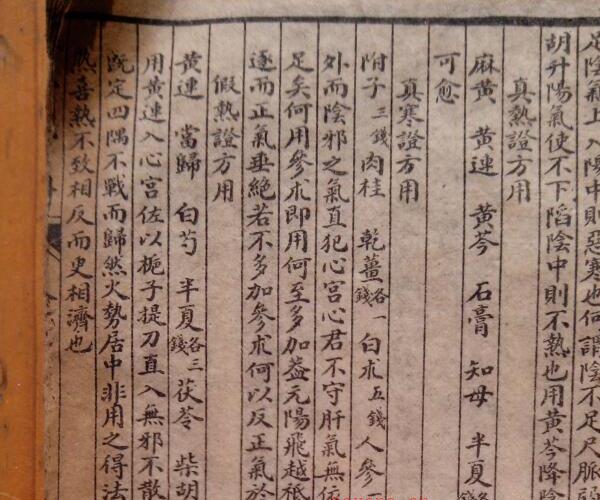 足陰氣上入陽中則惡寒也何謂陰不足尺脈弱
胡升陽氣使不下陷陰中則不熱也用黃芩降陰
真熱證方用
麻黃 黃連 黃芩 石膏 知母 半夏
可愈
真寒證方用
附子三錢肉桂 乾薑各一錢 白朮五錢人參
外而陰邪之氣直犯心宮心君不守肝氣無依
足矣何用參朮即用何至多加蓋元陽飛越祗
逐而正氣垂絕若不多加參朮何以反正氣於
假熱證方用
黃連 當歸 白芍 半夏各三錢茯苓 柴胡
用黃連入心宮佐以梔子提刀直入無邪不散
既定四隅不戰而歸然火勢居中非用之得法
熱喜熱不致相反而更相濟也